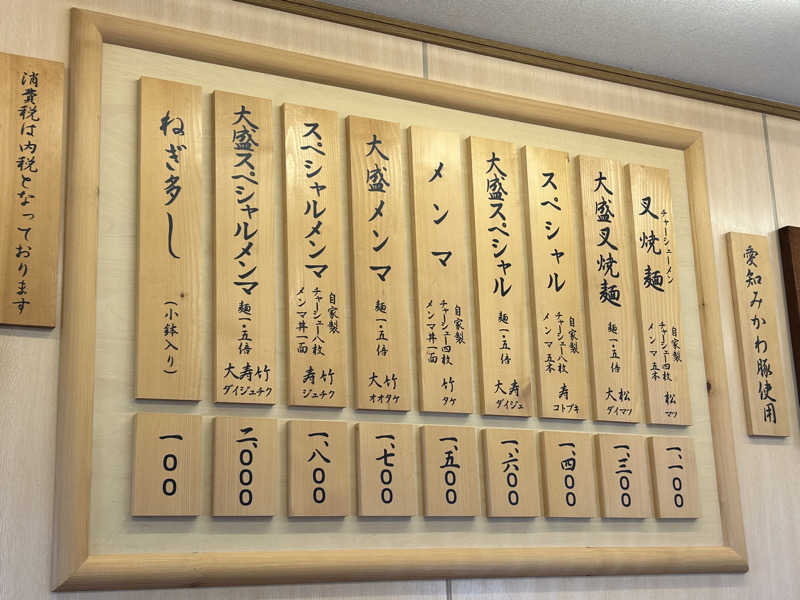 愛知みかわ豚使用
叉焼麺
チャーシューメン
自家製
チャーシュー四枚
メンマ五本
松
マツ
一、一〇〇
大盛叉焼麺
麺一・五倍
大松
ダイマツ
一、三〇〇
スペシャル
自家製
チャーシュー八枚
メンマ五本
寿
コトブキ
一、四〇〇
大盛スペシャル
麺一・五倍
大寿
ダイジュ
一、六〇〇
メンマ
自家製
チャーシュー四枚
メンマ丼一面
竹
タケ
一、五〇〇
大盛メンマ
麺一・五倍
大竹
オオタケ
一、七〇〇
スペシャルメンマ
自家製
チャーシュー八枚
メンマ丼一面
寿竹
ジュチク
一、八〇〇
大盛スペシャルメンマ
麺一・五倍
大寿竹
ダイジュチク
二、〇〇〇
ねぎ多し
(小鉢入り)
一〇〇
消費税は内税となっております